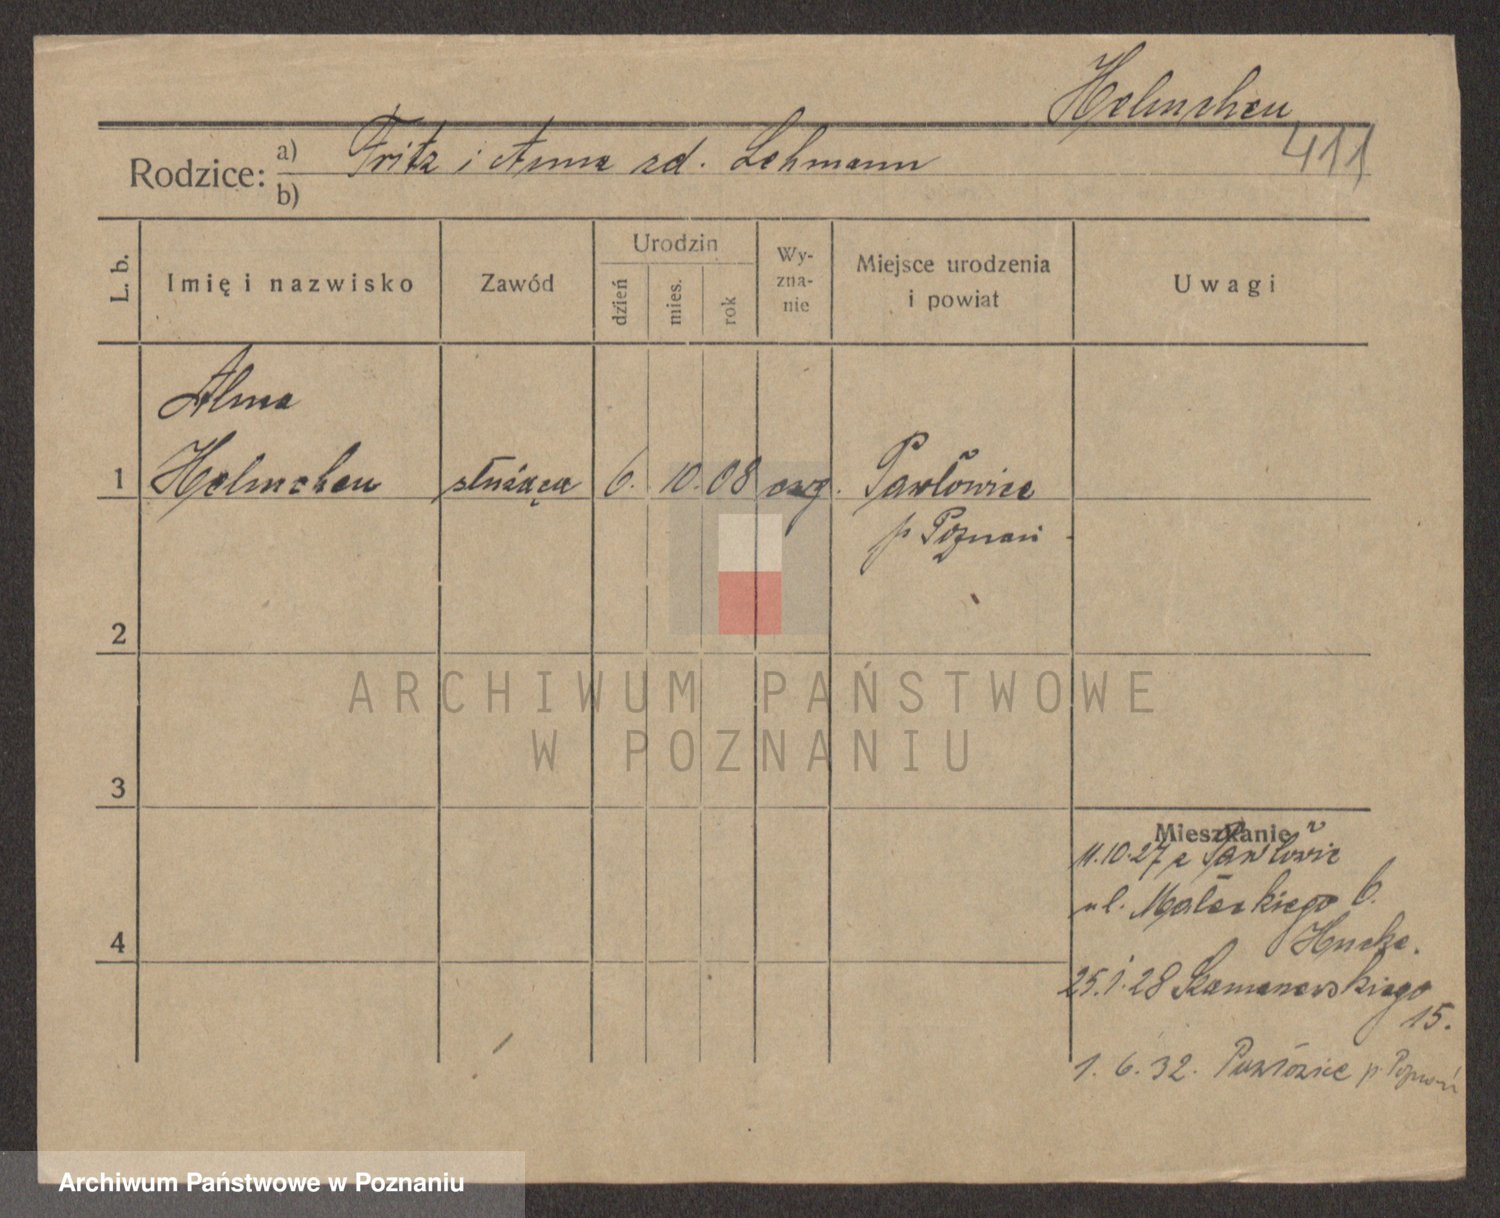 Helmchen
411
Rodzice:
a) Fritz i Anna zd. Lehmann
b)
L. b.
Imię i nazwisko
Zawód
Urodzin
dzień
mies.
rok
Wy-
zna-
nie
Miejsce urodzenia
i powiat
Uwagi
Alma
1 Helmchen służąca 6. 10. 08 ewg. Pawłowice
p Poznań
2
3
4
Mieszkanie
11.10.27 z Pawłowic
ul. Małeckiego 6.
25.1.28 15.
1. 6. 32. Pawłowice p. Poznań
ARCHIWUM PAŃSTWOWE
W POZNANIU
Archiwum Państwowe w Poznaniu